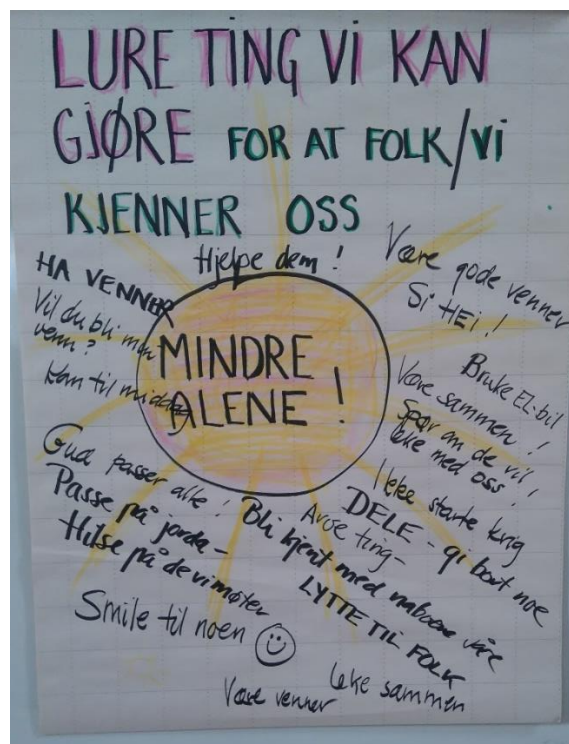 LURE TING VI KAN
GJØRE FOR AT FOLK/Vi
KJENNER OSS
MINDRE
ALENE!
Hjelpe dem!
HA VENNER
Vil du bli min
venn?
Kom til middag
Være gode venner
Si HEi!
Bruke EL-bil
Være sammen!
Spør om de vil
leke med oss!
Ikke starte krig
DELE - gi bort noe
Gud passer alle!
Passe på jorda-
Hilse på de vi møter
Arve ting-
Bli kjent med naboene våre
LYTTE TIL FOLK
Smile til noen
Leke sammen
Være venner